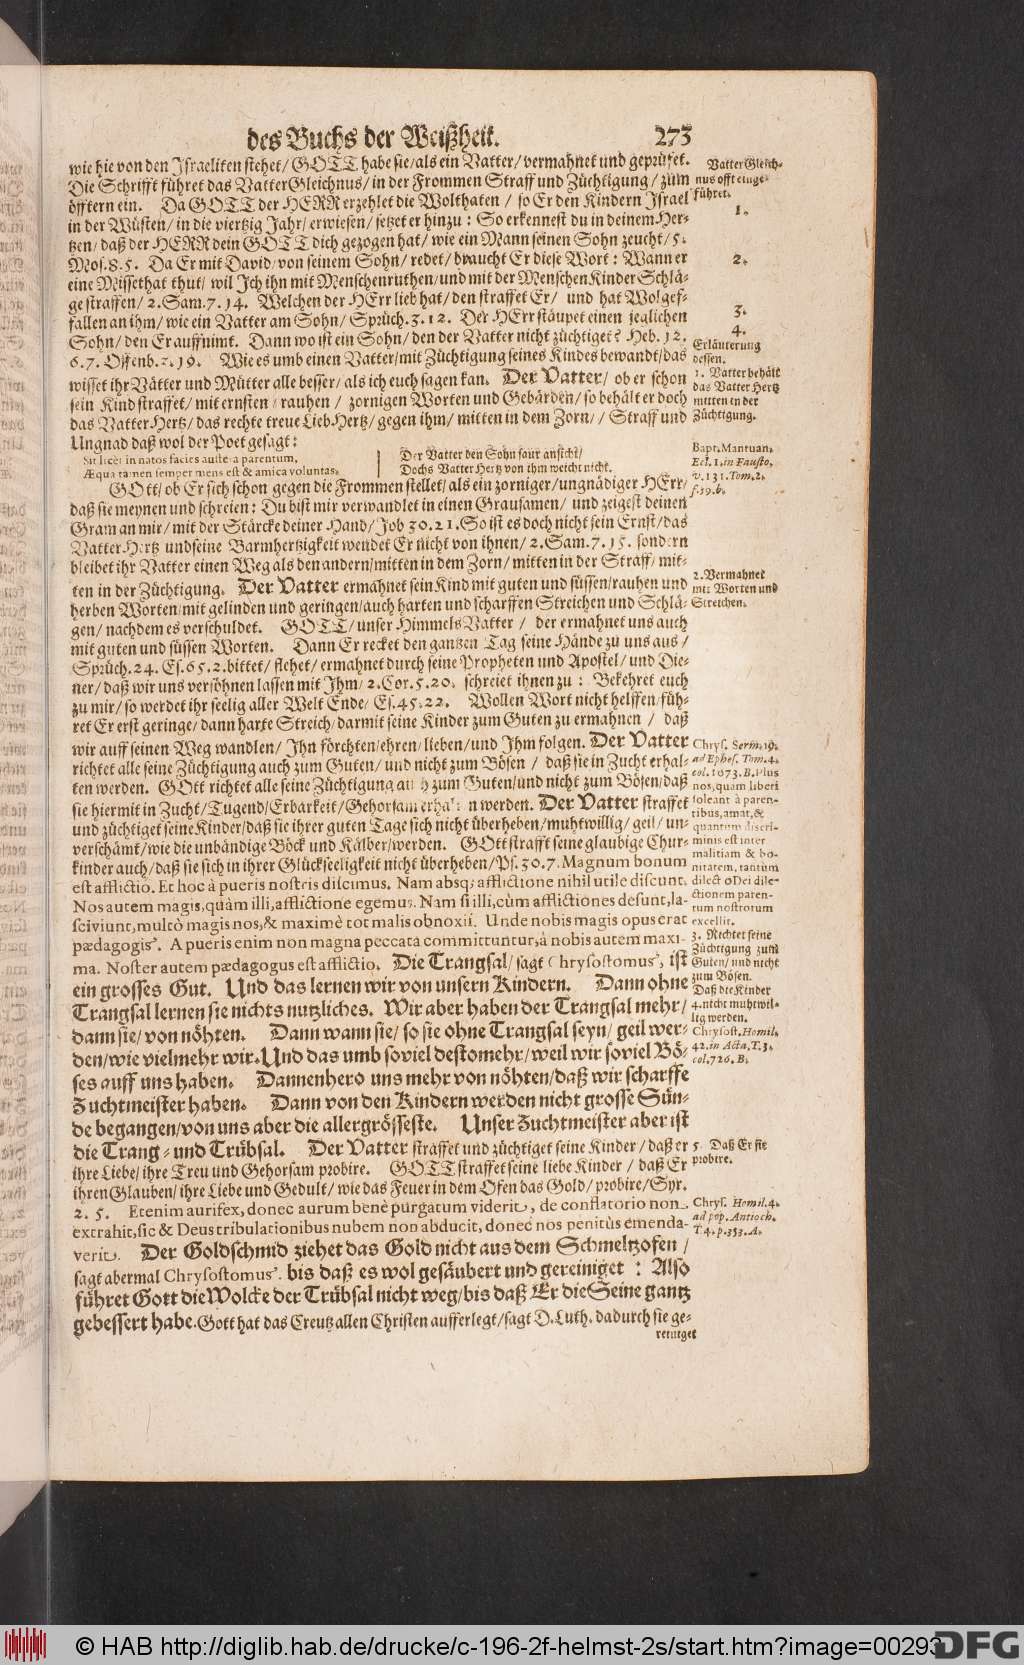 des Buchs der Weißheit. 273
wie hie von den Israeliten stehet/ GOTT habe sie/ als ein Vatter/ vermahnet und geprüfet.
Die Schrifft führet das VatterGleichnus/ in der Frommen Straff und Züchtigung/ zum
öfftern ein. Da GOTT der HERR erzehlet die Wolthaten / so Er den Kindern Israel
in der Wüsten/ in die viertzig Jahr/ erwiesen/ setzet er hinzu: So erkennest du in deinem Her-
tzen/ daß der HERR dein GOTT dich gezogen hat/ wie ein Mann seinen Sohn zeucht/ 5.
Mos. 8. 5. Da Er mit David/ von seinem Sohn/ redet/ braucht Er diese Wort: Wann er
eine Missethat thut/ wil Ich ihn mit Menschenruthen/ und mit der MenschenKinder Schlä-
ge straffen/ 2. Sam. 7. 14. Welchen der HErr lieb hat/ den straffet Er/ und hat Wolgef-
fallen an ihm/ wie ein Vatter am Sohn/ Sprüch. 3. 12. Der HErr stäupet einen jeglichen
Sohn/ den Er auffnimt. Dann wo ist ein Sohn/ den der Vatter nicht züchtiget? Heb. 12.
6. 7. Offenb. 19. Wie es umb einen Vatter/ mit Züchtigung seines Kindes bewandt/ das
wisset ihr Vätter und Mütter alle besser/ als ich euch sagen kan. Der Vatter/ ob er schon
sein Kind straffet/ mit ernsten / rauhen / zornigen Worten und Gebärden/ so behält er doch
das Vatter Hertz/ das rechte treue Lieb-Hertz/ gegen ihm/ mitten in dem Zorn/ / Straff und
Ungnad daß wol der Poet gesagt:
Sit licèt in natos facies austera parentum,
Æqua tamen semper mens est & amica voluntas.
Der Vatter den Sohn saur ansicht/
Dochs Vatter Hertz von ihm weicht nicht.
GOtt/ ob Er sich schon gegen die Frommen stellet/ als ein zorniger/ ungnädiger HErr/
daß sie meynen und schreien: Du bist mir verwandlet in einen Grausamen/ und zeigest deinen
Gram an mir/ mit der Stärcke deiner Hand/ Job 30. 21. So ist es doch nicht sein Ernst/ das
Vatter Hertz und seine Barmhertzigkeit wendet Er nicht von ihnen/ 2. Sam. 7. 15. sondern
bleibet ihr Vatter einen Weg als den andern/ mitten in dem Zorn/ mitten in der Straff/ mit-
ten in der Züchtigung. Der Vatter ermahnet sein Kind mit guten und süssen/ rauhen und
herben Worten/ mit gelinden und geringen/ auch harten und scharffen Streichen und Schlä-
gen/ nachdem es verschuldet. GOTT/ unser HimmelsVatter / der ermahnet uns auch
mit guten und süssen Worten. Dann Er recket den gantzen Tag seine Hände zu uns aus /
Sprüch. 24. Es. 65. 2. bittet/ flehet/ ermahnet durch seine Propheten und Apostel/ und Die-
ner/ daß wir uns versöhnen lassen mit Ihm/ 2. Cor. 5. 20. schreiet ihnen zu: Bekehret euch
zu mir/ so werdet ihr seelig aller Welt Ende/ Es. 45. 22. Wollen Wort nicht helffen/ füh-
ret Er erst geringe/ dann harte Streich/ darmit seine Kinder zum Guten zu ermahnen / daß
wir auff seinen Weg wandlen/ Ihn förchten/ ehren/ lieben/ und Ihm folgen. Der Vatter
richtet alle seine Züchtigung auch zum Guten/ und nicht zum Bösen / daß sie in Zucht erhal-
ten werden. GOtt richtet alle seine Züchtigung auch zum Guten/ und nicht zum Bösen/ daß
sie hiermit in Zucht/ Tugend/ Erbarkeit/ Gehorsam erhalten werden. Der Vatter straffet
und züchtiget seine Kinder/ daß sie ihrer guten Tage sich nicht überheben/ muhtwillig/ geil/ un-
verschämt/ wie die unbändige Böck und Kälber/ werden. GOtt strafft seine glaubige Chur-
kinder auch/ daß sie sich in ihrer Glückseeligkeit nicht überheben/ Ps. 30. 7. Magnum bonum
est afflictio. Et hoc à pueris nostris discimus. Nam absq; afflictione nihil utile discunt.
Nos autem magis, quàm illi, afflictione egemus. Nam si illi, cùm afflictiones desunt, la-
sciviunt, multò magis nos, & maximè tot malis obnoxii. Unde nobis magis opus erat
pædagogis. A pueris enim non magna peccata committuntur, à nobis autem maxi-
ma. Noster autem pædagogus est afflictio. Die Trangsal/ sagt Chrysostomus, ist
ein grosses Gut. Und das lernen wir von unsern Kindern. Dann ohne
Trangsal lernen sie nichts nutzliches. Wir aber haben der Trangsal mehr/
dann sie/ von nöhten. Dann wann sie/ so sie ohne Trangsal seyn/ geil wer-
den/ wie vielmehr wir. Und das umb soviel destomehr/ weil wir soviel Bö-
ses auff uns haben. Dannenhero uns mehr von nöhten/ daß wir scharffe
Zuchtmeister haben. Dann von den Kindern werden nicht grosse Sün-
de begangen/ von uns aber die allergrösseste. Unser Zuchtmeister aber ist
die Trang- und Trübsal. Der Vatter straffet und züchtiget seine Kinder / daß er
ihre Liebe/ ihre Treu und Gehorsam probire. GOTT straffet seine liebe Kinder / daß Er
ihren Glauben/ ihre Liebe und Gedult/ wie das Feuer in dem Ofen das Gold/ probire/ Syr.
2. 5. Etenim aurifex, donec aurum benè purgatum viderit, de conflatorio non
extrahit, sic & Deus tribulationibus nubem non abducit, donec nos penitùs emenda-
verit. Der Goldschmid ziehet das Gold nicht aus dem Schmeltzofen /
sagt abermal Chrysostomus, bis daß es wol gesäubert und gereiniget: Also
führet Gott die Wolcke der Trübsal nicht weg/ bis daß Er die Seine gantz
gebessert habe. Gott hat das Creutz allen Christen aufferlegt/ sagt D. Luth. dadurch sie ge-
reiniget
Vatter Gleich-
nus offt einge-
führet.
1.
2.
3.
4.
Erläuterung
dessen.
1. Vatter behält
das Vatter Hertz
mitten in der
Züchtigung.
Bapt. Mantuan.
Ecl. 1. in Fausto,
v. 131. Tom. 2.
f. 19. b.
2. Vermahnet
mit Worten und
Streichen.
Chrys. Serm. 19.
ad Ephes. Tom. 4.
col. 1073. B. Plus
nos, quàm liberi
soleant à paren-
tibus, amat, &
quantum discri-
minis est inter
malitiam & bo-
nitatem, tantùm
dilectio Dei dile-
ctionem paren-
tum nostrorum
excellit.
3. Richtet seine
Züchtigung zum
Guten/ und nicht
zum Bösen.
Daß die Kinder
4. nicht muhtwil-
lig werden.
Chrysost. Homil.
42. in Acta, T. 3.
col. 726. B.
5 Daß Er sie
probire.
Chrys. Homil. 4.
ad pop. Antioch.
T. 4. p. 353. A.
© HAB http://diglib.hab.de/drucke/c-196-2f-helmst-2s/start.htm?image=00293
DFG